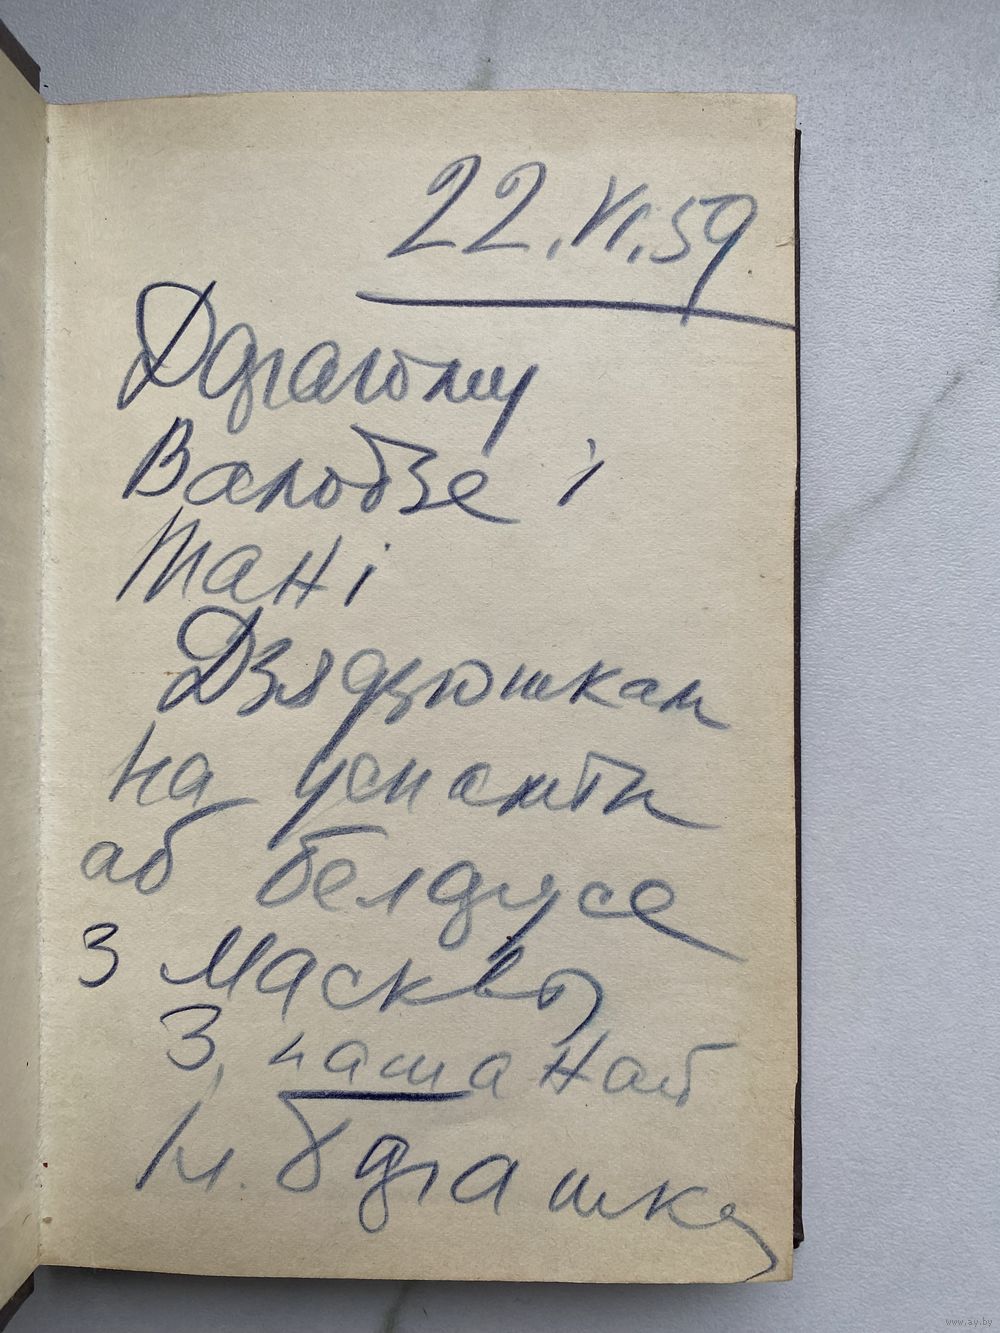 22.VI.59
Дарагому
Валодзе і
Тані
Дзядзюшкам
на успамін
аб беларусе
з Масквы
З пашанай
Іл. Барашка
www.ay.by